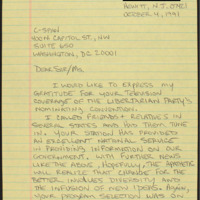 HEWITT, N.J. 07421
OCTOBER 14, 1991
C-SPAN
400 N. CAPITOL ST., NW
SUITE 650
WASHINGTON, DC 20001
DEAR SIR/MS.
I WOULD LIKE TO EXPRESS MY
GRATITUDE FOR YOUR TELEVISION
COVERAGE OF THE LIBERTARIAN PARTY'S
NOMINATING CONVENTION.
I CALLED FRIENDS + RELATIVES IN
SEVERAL STATES AND HAD THEM TUNE
IN. YOUR STATION HAS PROVIDED
AN EXCELLENT NATIONAL SERVICE
IN PROVIDING INFORMATION ON OUR
GOVERNMENT. WITH FURTHER NEWS
LIKE THE ABOVE, HOPEFULLY, THE APATHETIC
WILL REALIZE THAT CHANGE FOR THE
BETTER INVOLVES DIVERSITY AND
THE INFUSION OF NEW IDEAS. AGAIN,
YOUR PROGRAM SELECTION WAS ON